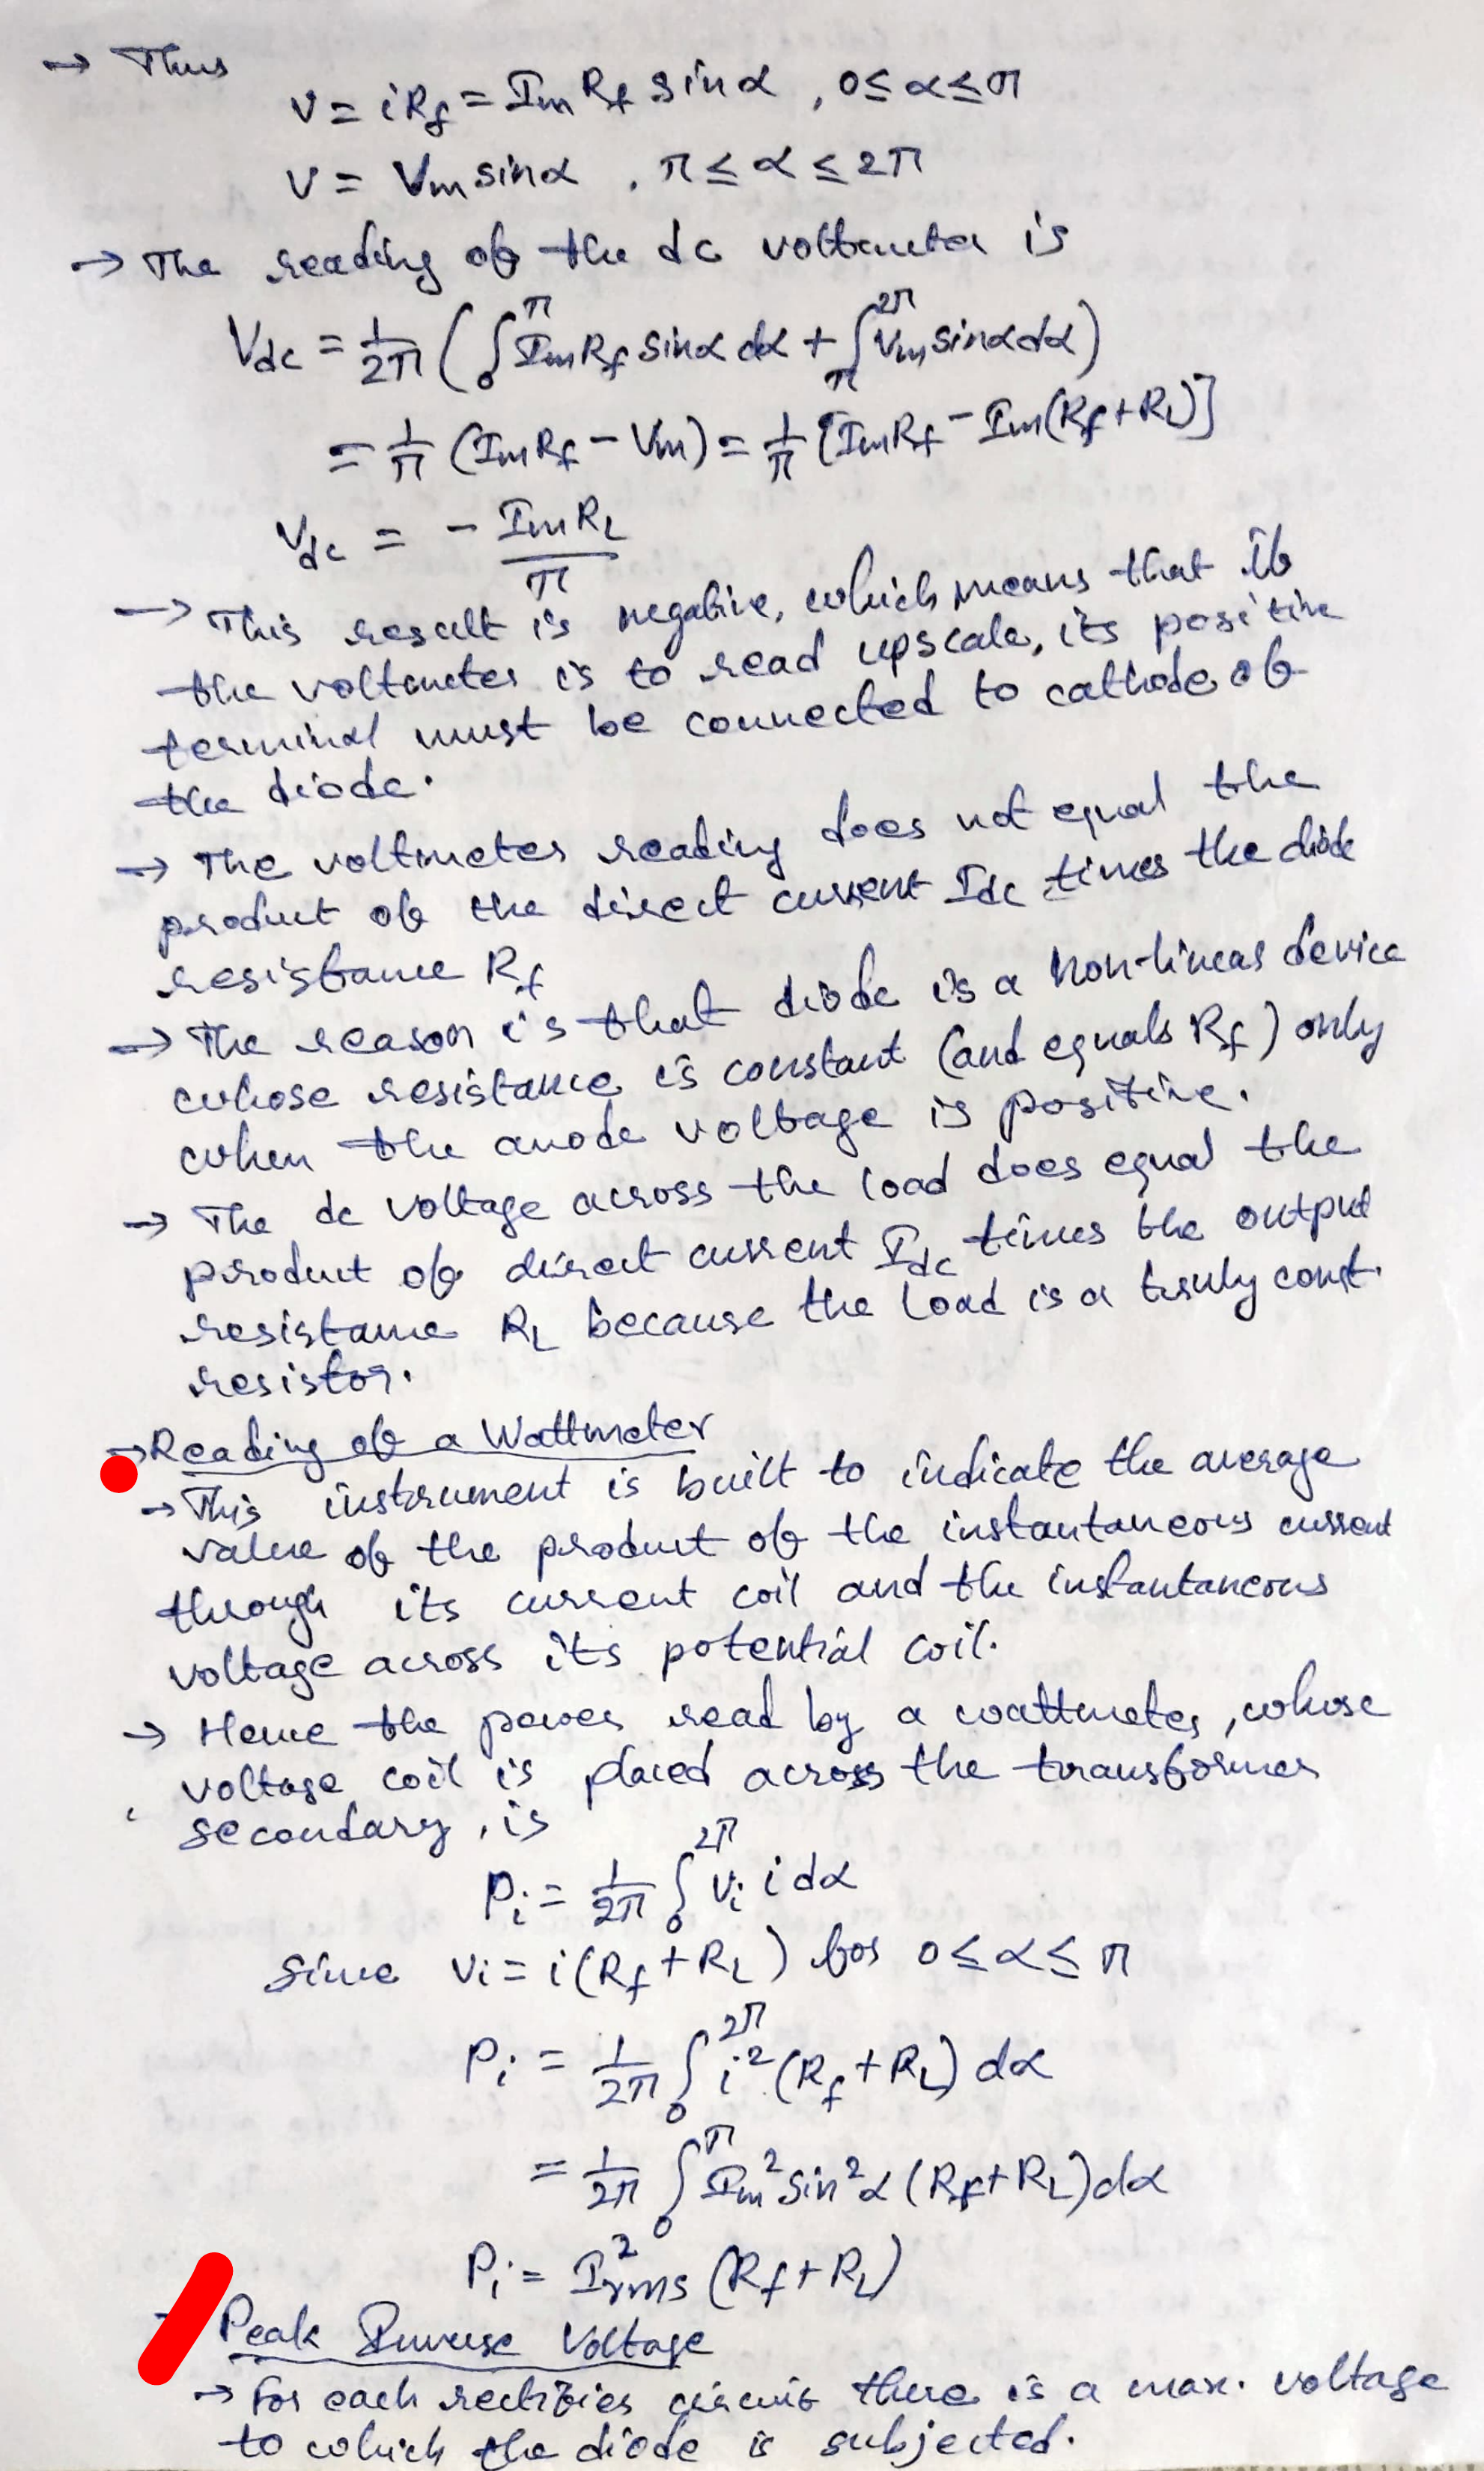 → Thus
v = iRf = Im Rf sinα , 0 ≤ α ≤ π
v = Vm sinα , π ≤ α ≤ 2π
→ The reading of the dc voltmeter is
Vdc = 1/2π ( ∫₀^π Im Rf sinα dα + ∫π^2π Vm sinα dα )
= 1/π (Im Rf − Vm) = 1/π [Im Rf − Im(Rf + RL)]
Vdc = − Im RL / π
→ This result is negative, which means that if
the voltmeter is to read upscale, its positive
terminal must be connected to cathode of
the diode.
→ The voltmeter reading does not equal the
product of the direct current Idc times the diode
resistance Rf
→ The reason is that diode is a non-linear device
whose resistance is constant (and equals Rf) only
when the anode voltage is positive.
→ The dc voltage across the load does equal the
product of direct current Idc times the output
resistance RL because the load is a truly const.
resistor.
→ Reading of a Wattmeter
→ This instrument is built to indicate the average
value of the product of the instantaneous current
through its current coil and the instantaneous
voltage across its potential coil.
→ Hence the power read by a wattmeter, whose
voltage coil is placed across the transformer
secondary, is
Pi = 1/2π ∫₀^2π vi i dα
Since vi = i(Rf + RL) for 0 ≤ α ≤ π
Pi = 1/2π ∫₀^2π i² (Rf + RL) dα
= 1/2π ∫₀^π Im² sin²α (Rf + RL) dα
Pi = I²rms (Rf + RL)
Peak Inverse Voltage
→ For each rectifier circuit there is a max. voltage
to which the diode is subjected.